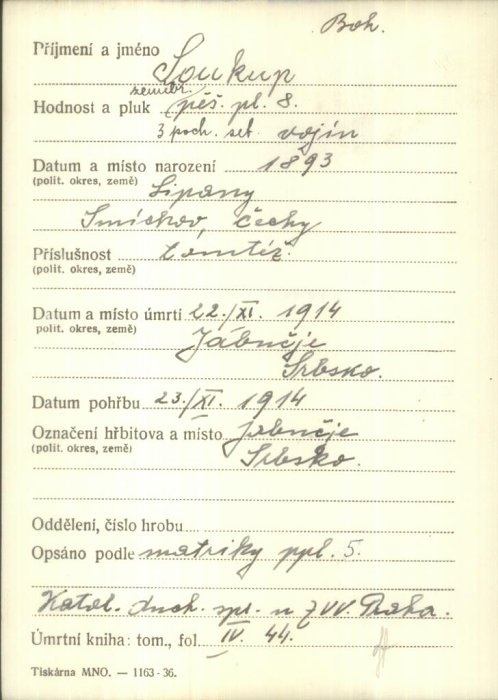 Boh.
Příjmení a jméno
Soukup
zeměbr.
Hodnost a pluk pěš. pl. 8.
3 poch. set. vojín
Datum a místo narození 1893
(polit. okres, země) Lipany
Smíchov, Čechy
Příslušnost tamtéž.
(polit. okres, země)
Datum a místo úmrtí 22./XI. 1914
polit. okres, země)
Jabučje
Srbsko.
Datum pohřbu 23./XI. 1914
Označení hřbitova a místo Jabučje
(polit. okres, země) Srbsko.
Oddělení, číslo hrobu
Opsáno podle matriky ppl. 5.
Katol. duch. spr. u ZVV. Praha.
Úmrtní kniha: tom., fol. IV. 44.
Tiskárna MNO. — 1163-36.